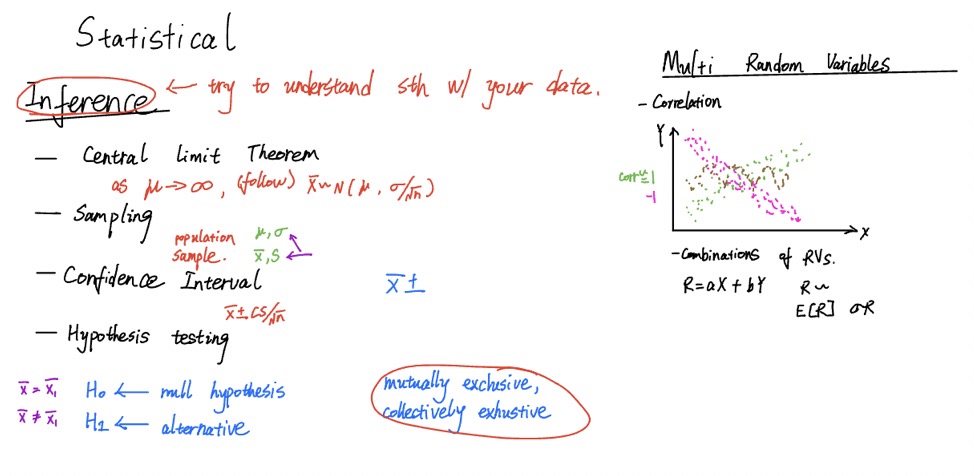 Statistical
Inference ← try to understand sth w/ your data.
— Central limit Theorem
as μ → ∞, (follow) x̄ ~ N(μ, σ/√n)
— Sampling
population μ, σ
sample. x̄, S
— Confidence Interval x̄ ±
x̄ ± CS/√n
— Hypothesis testing
x̄ = x̄₁ H₀ ← null hypothesis
x̄ ≠ x̄₁ H₁ ← alternative
mutually exclusive,
collectively exhustive
Multi Random Variables
- Correlation
Y
corr = 1
-1
X
- Combinations of RVs.
R = aX + bY R ~
E[R] σR